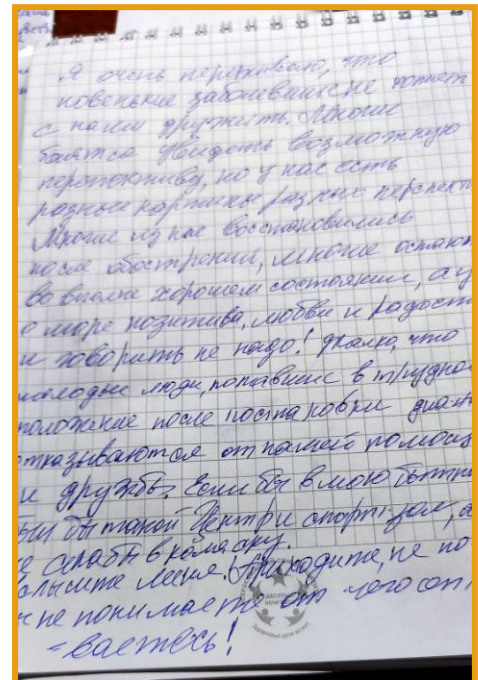 Я очень переживаю, что
новенькие заболевшие не хотят
с нами дружить. Многие
боятся увидеть возможную
перспективу, но у нас есть
разные картины разных перспект
Многие из нас восстановились
после обострений, многие остают
во вполне хорошем состоянии, а у
о море позитива, любви и радост
и говорить не надо! Жалко, что
молодые люди, попавшие в трудно
положение после постановки диагн
отказываются от нашей помощи
и дружбы. Если бы в мою бытн
был бы такой Центр и спортзал,
не слабы в кома
слышите меня! Приходите, не по
не понимаете от чего от
-ваетесь!